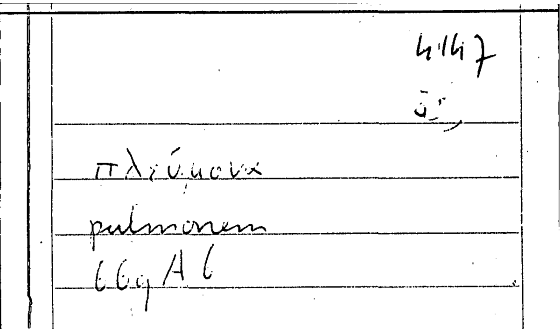 4147
πλεύμονα
pulmonem
669 A 6